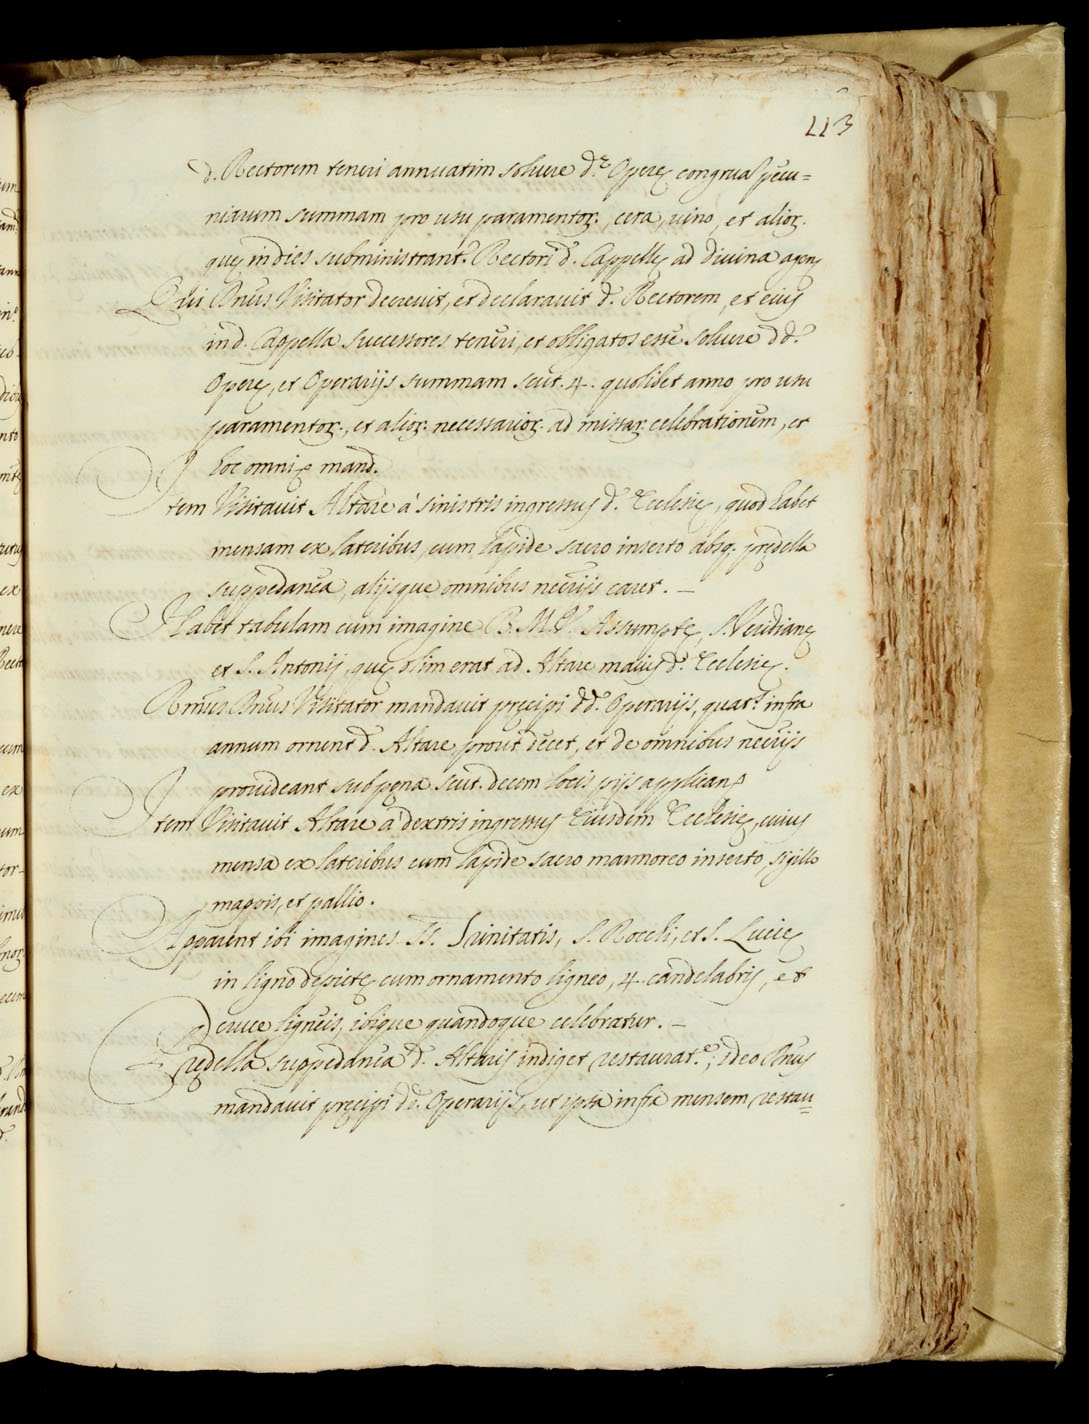 113
d. Rectorem teneri annuatim soluere d.ę Operę congrua pecu=
niarum summam pro usu paramentor., cera, vino, et alior.
quę in dies subministrant.r Rectori d. Cappellę ad divina agen
Qui Dnus Visitator decrevit, et declaravit d. Rectorem, et eius
in d. Cappella successores teneri, et obligatos esse soluere dd.
Operę, et Operarijs summam scut. 4. quolibet anno pro usu
paramentor., et alior. necessarior. ad missar. celebrationem, et
hoc omni mand.
Item Visitavit Altare à sinistris ingressus d. Ecclesię, quod habet
mensam ex lateribus, cum lapide sacro inserto absq. prędella
suppedanea, alijsque omnibus necrijs caret. —
Habet tabulam cum imagine B. M. V. Assumptę, S. Verdianę
et S. Antonij, quę olim erat ad Altare maius d. Ecclesię.
Rmus Dnus Visitator mandavit pręcipi dd. Operarijs, quat.s infra
annum ornent d. Altare prout decet, et de omnibus necrijs
provideant sub pęna scut. decem locis pijs applican
Item Visitavit Altare à dextris ingressus Eiusdem Ecclesię, cuius
mensa ex lateribus cum lapide sacro marmoreo inserto, sigillo
mapois, et pallio.
Apparent ibi imagines SS. Trinitatis, S. Rocchi, et S. Lucię
in ligno depictę cum ornamento ligneo, 4. candelabris, et
cruce ligneis, ibique quandoque celebratur. —
Prędella suppedanea d. Altaris indiget restaurat.e, ideo Dnus
mandavit pręcipi dd. Operarijs, ut ipsa infra mensem restau=